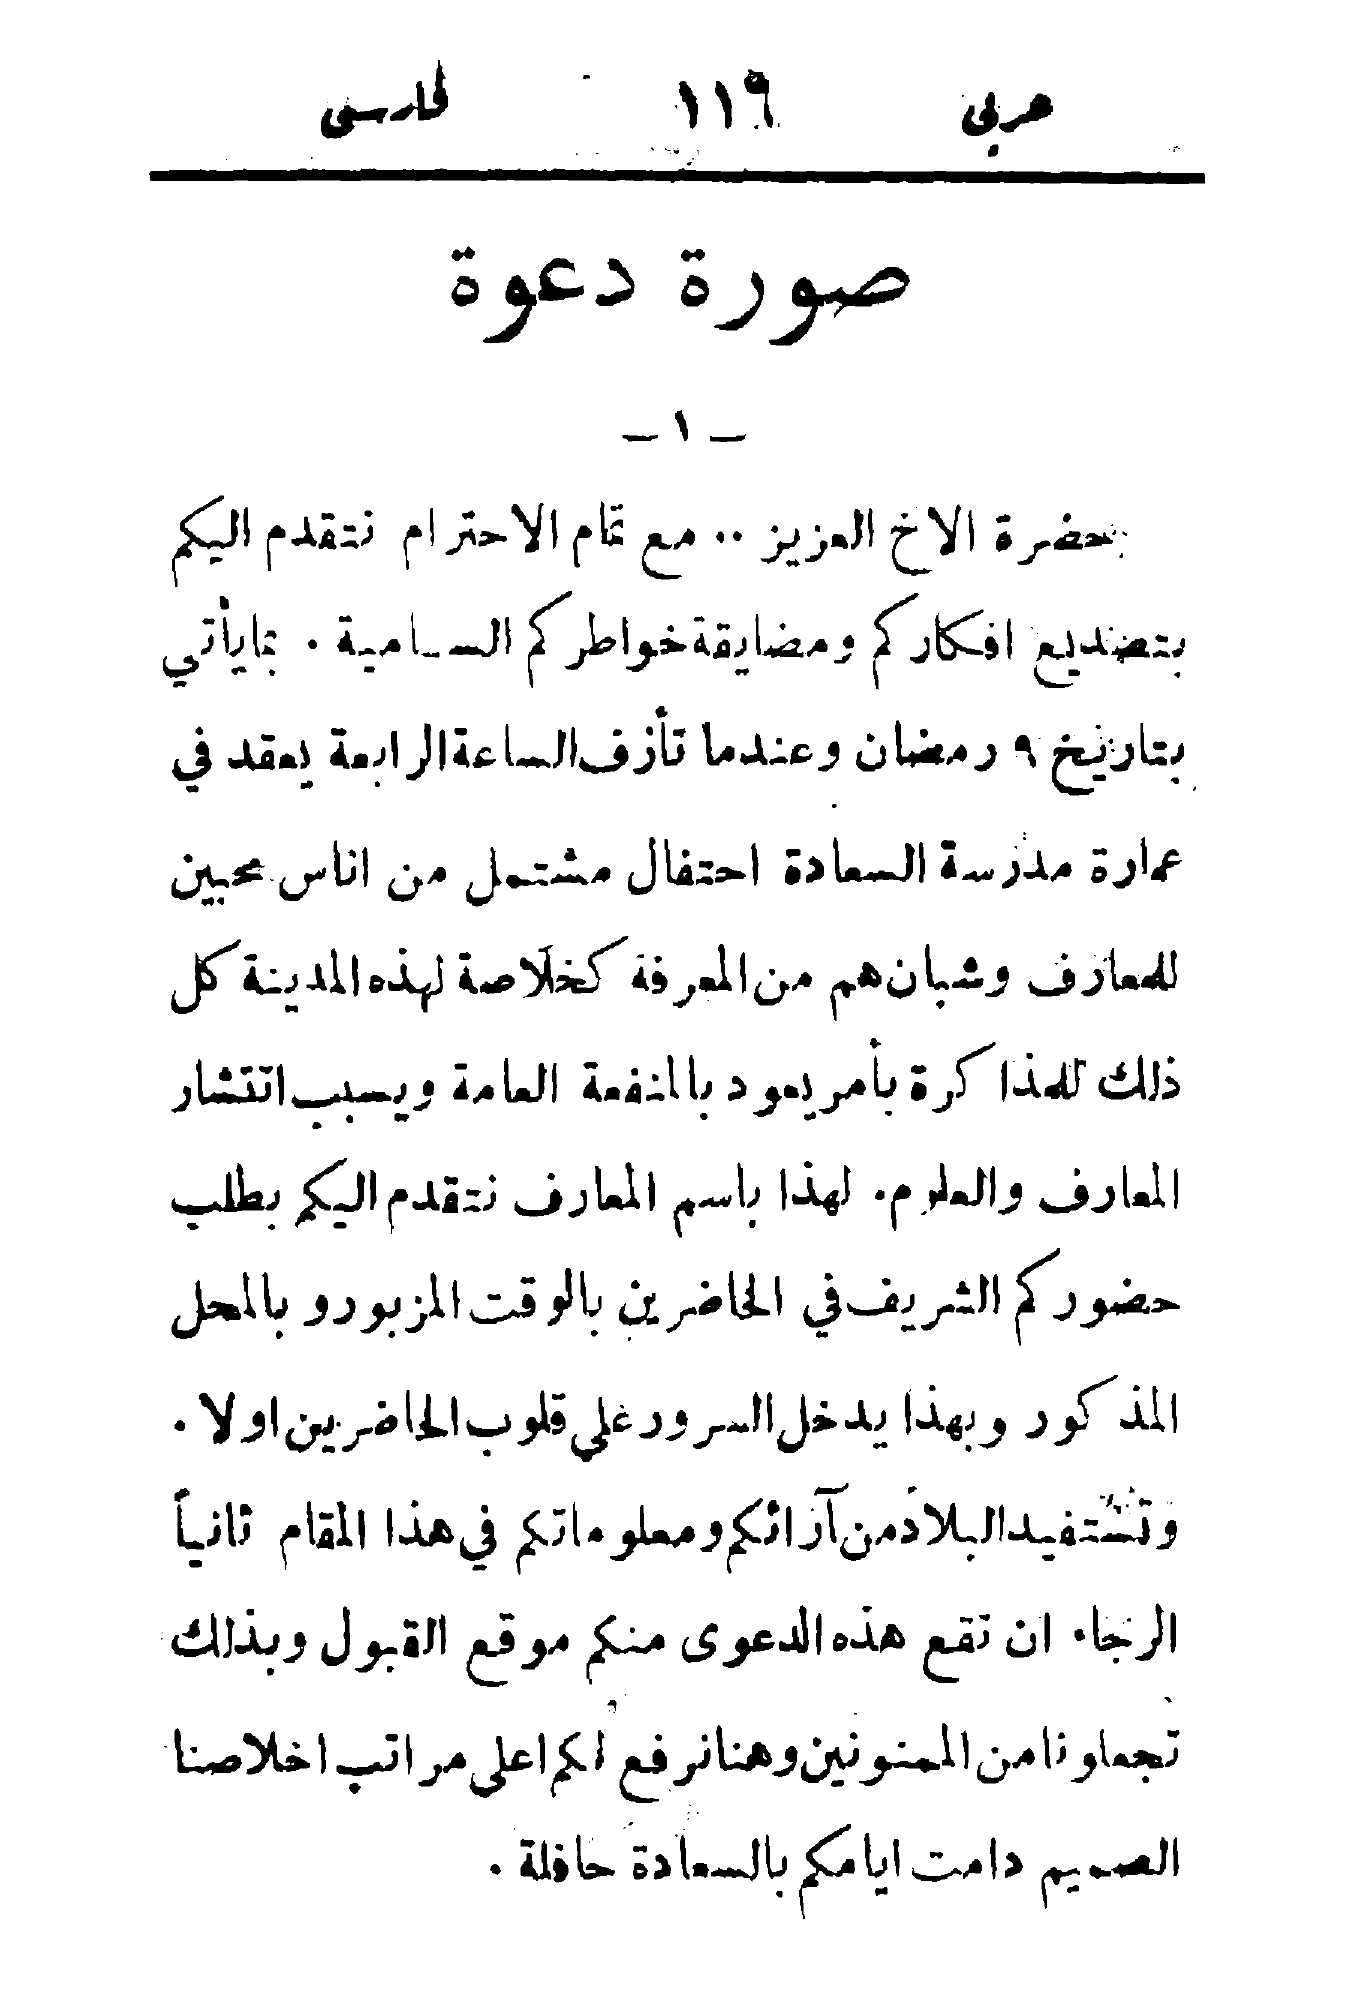 عربي ١١٩ فارسى
صورة دعوة
ـ ١ ـ
حضرة الاخ العزيز .. مع تمام الاحترام نتقدم اليكم
بتصديع افكاركم ومضايقة خواطركم السامية . بمايأتي
بتاريخ ٩ رمضان وعندما تأزف الساعة الرابعة يعقد في
عمارة مدرسة السعادة احتفال مشتمل من اناس محبين
للمعارف وشبان هم من المعرفة كخلاصة لهذه المدينة كل
ذلك للمذاكرة بأمر يعود بالمنفعة العامة ويسبب انتشار
المعارف والعلوم. لهذا باسم المعارف نتقدم اليكم بطلب
حضوركم الشريف في الحاضرين بالوقت المزبور و بالمحل
المذكور وبهذا يدخل السرور علي قلوب الحاضرين اولا .
وتستفيد البلاد من آرائكم ومعلوماتكم في هذا المقام ثانياً
الرجا. ان تقع هذه الدعوى منكم موقع القبول وبذلك
تجعلونا من الممنونين وهنا نرفع لكم اعلى مراتب اخلاصنا
الصميم دامت ايامكم بالسعادة حافلة .